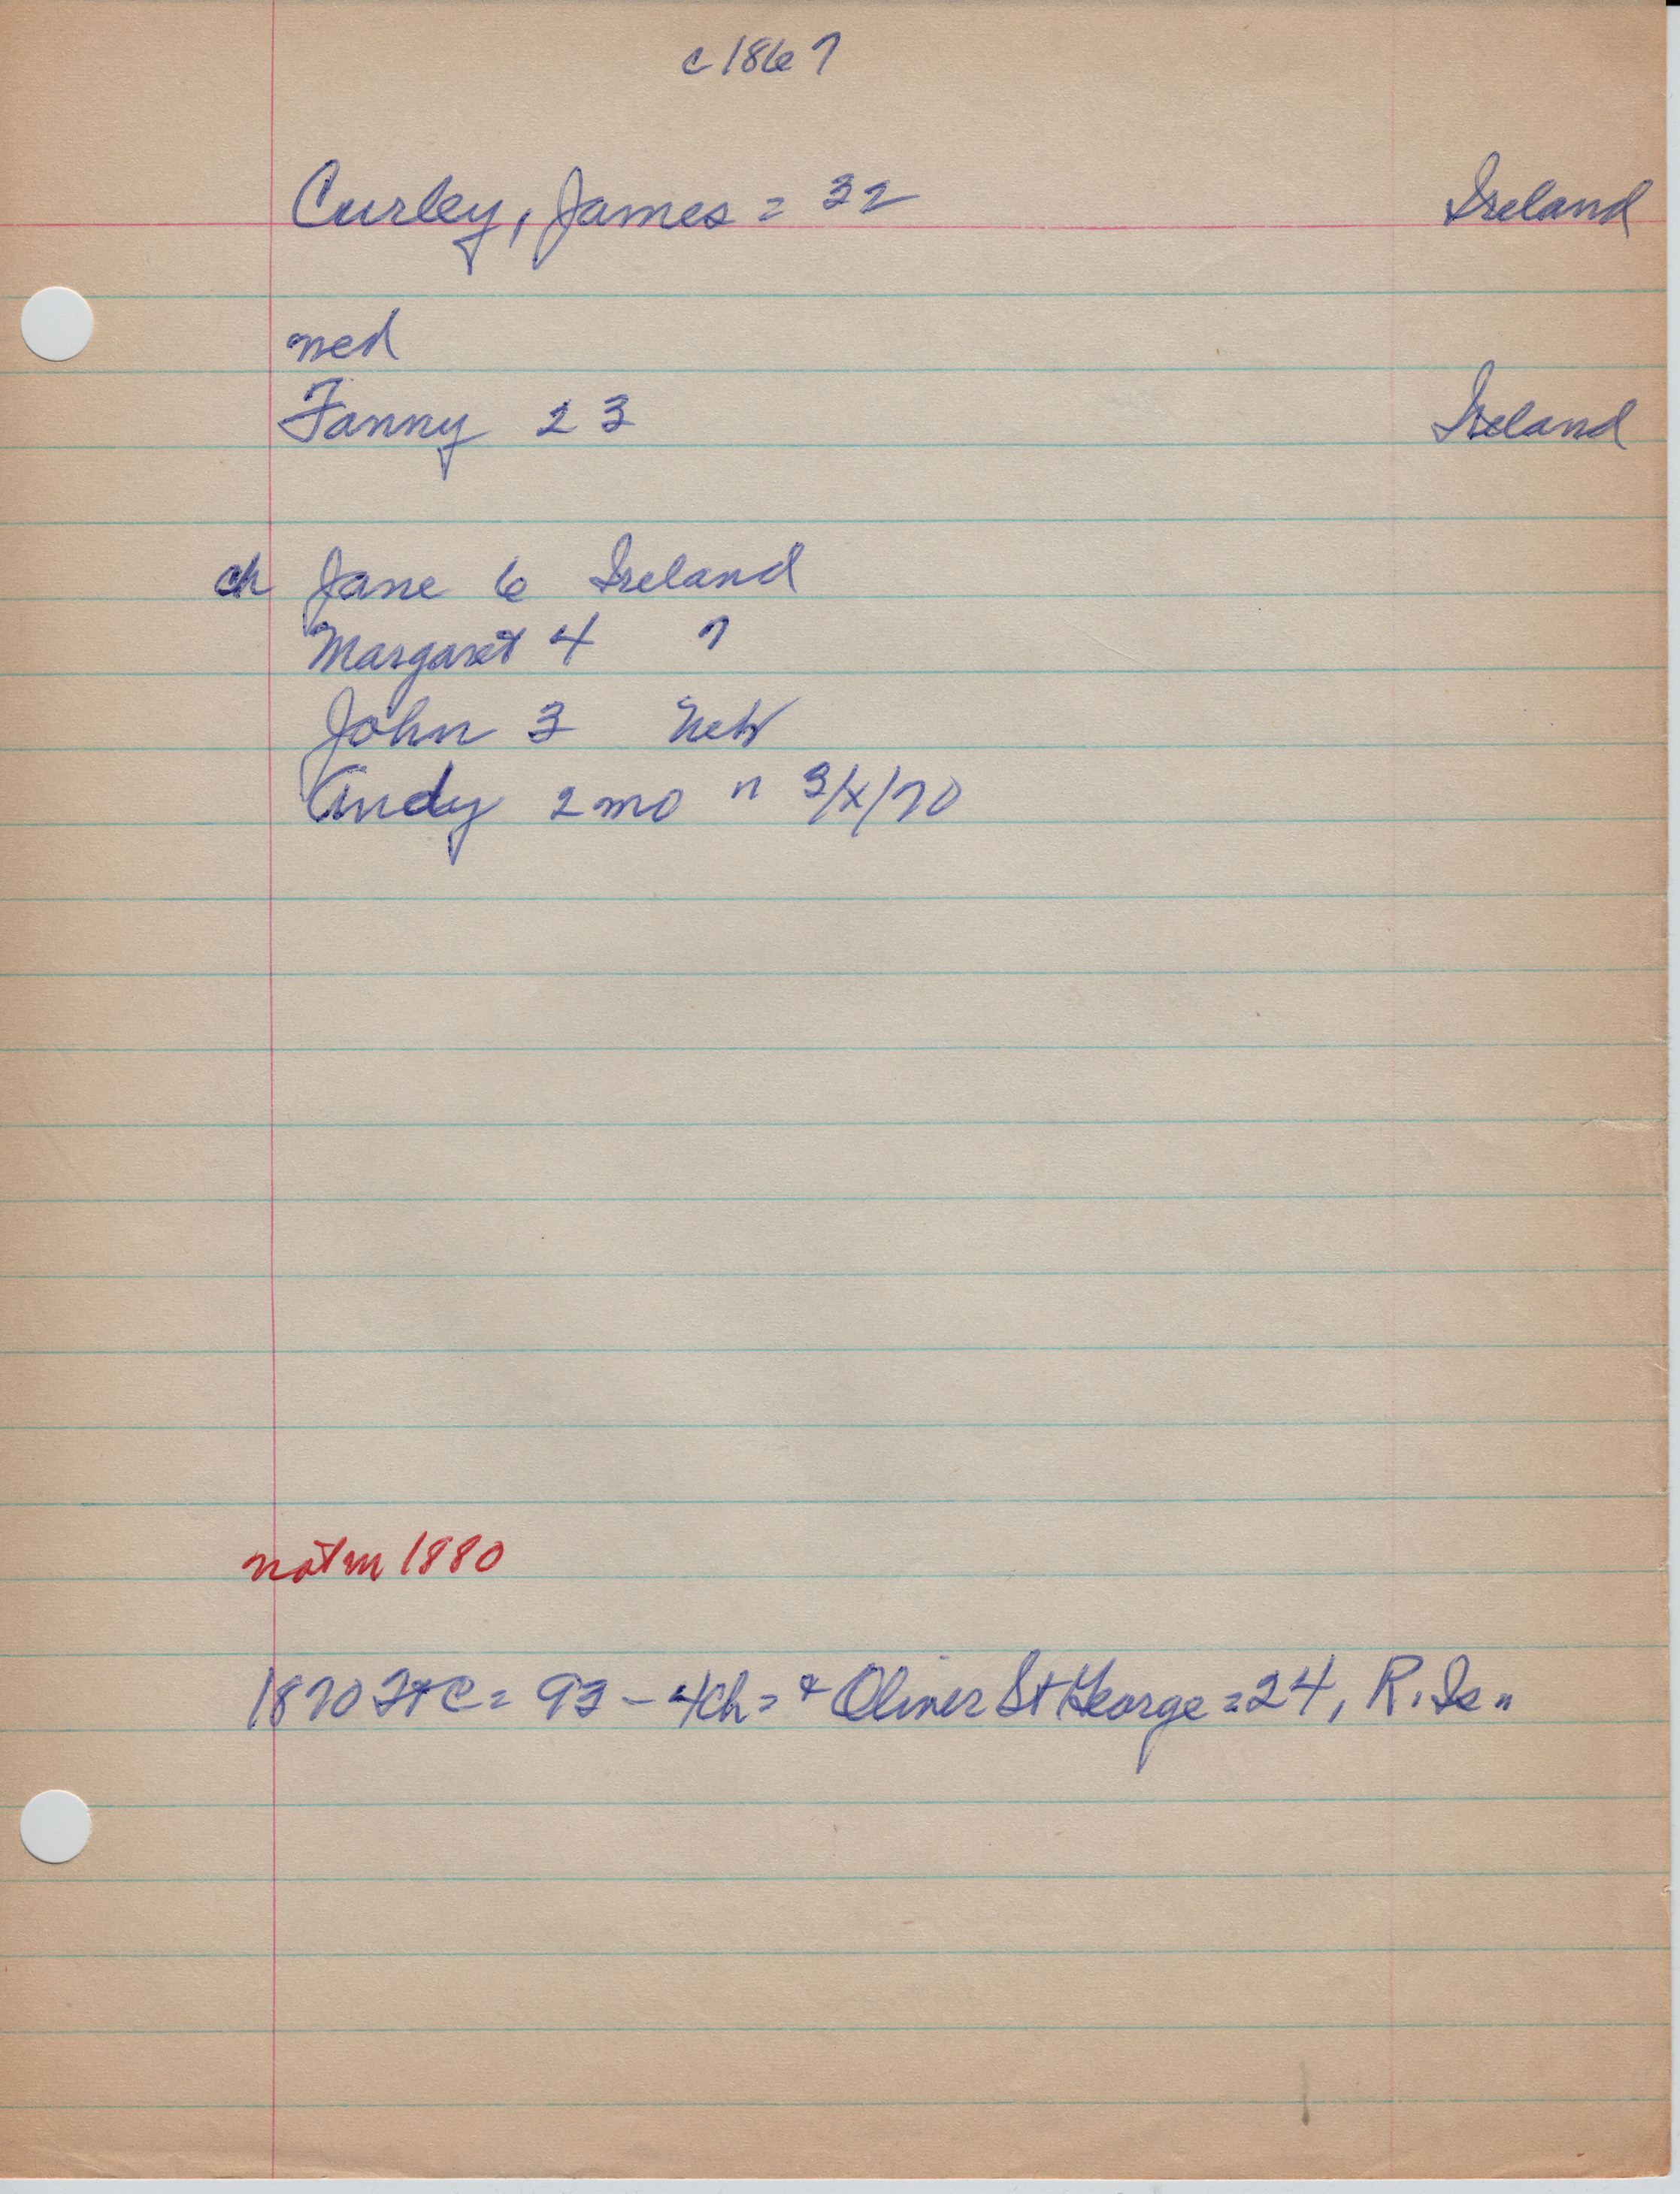 c 1867
Curley, James = 32 Ireland
med
Fanny 23 Ireland
ch Jane 6 Ireland
Margaret 4 "
John 3 Neb
Andy 2 mo " 3/x/70
not in 1880
1870 = 93 - 4ch = + Oliver St George = 24, R. Is"